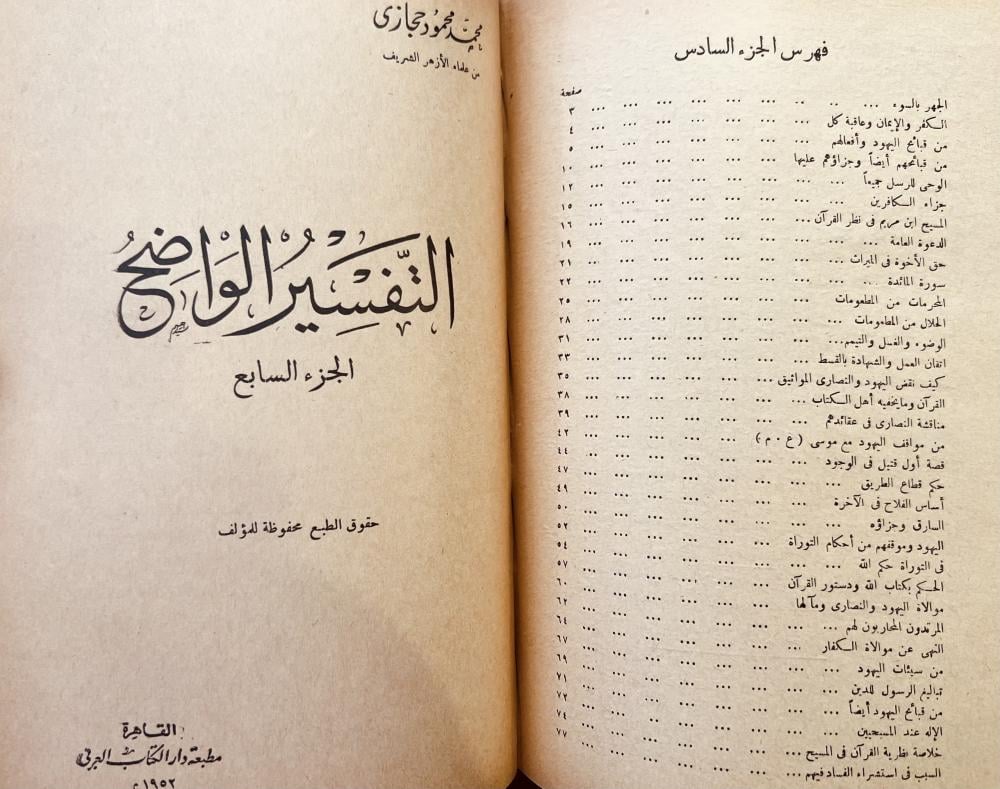 فهرس الجزء السادس
صفحة
الجهر بالسوء ... ٣
الكفر والإيمان وعاقبة كل ... ٤
من قبائح اليهود وأفعالهم ... ٥
من قبائحهم أيضاً وجزاؤهم عليها ... ١٠
الوحى للرسل جميعاً ... ١٢
جزاء الكافرين ... ١٥
المسيح ابن مريم فى نظر القرآن ... ١٦
الدعوة العامة ... ١٩
حق الأخوة فى الميراث ... ٢١
سورة المائدة ... ٢٢
المحرمات من المطعومات ... ٢٥
الحلال من المطعومات ... ٢٨
الوضوء والغسل والتيمم ... ٣١
اتقان العمل والشهادة بالقسط ... ٣٣
كيف نقض اليهود والنصارى المواثيق ... ٣٥
القرآن ومايخفيه أهل الكتاب ... ٣٨
مناقشة النصارى فى عقائدهم ... ٣٩
من مواقف اليهود مع موسى (ع . م) ... ٤٢
قصة أول قتيل فى الوجود ... ٤٤
حكم قطاع الطريق ... ٤٧
أساس الفلاح فى الآخرة ... ٤٩
السارق وجزاؤه ... ٥٠
اليهود وموقفهم من أحكام التوراة ... ٥٢
فى التوراة حكم الله ... ٥٤
الحكم بكتاب الله ودستور القرآن ... ٥٧
موالاة اليهود والنصارى ومآلها ... ٦٠
المرتدون المحاربون لهم ... ٦٢
النهى عن موالاة الكفار ... ٦٤
من سيئات اليهود ... ٦٧
تباليغ الرسول للدين ... ٦٩
من قبائح اليهود أيضاً ... ٧١
الإله عند المسيحيين ... ٧٢
خلاصة نظرية القرآن فى المسيح ... ٧٤
السبب فى استشراء الفساد فيهم ... ٧٧
محمد محمود حجازى
من علماء الأزهر الشريف
التَّفْسِيرُ الْوَاضِحُ
الجزء السابع
حقوق الطبع محفوظة للمؤلف
القاهرة
مطبعة دار الكتاب العربى
١٩٥٢ م